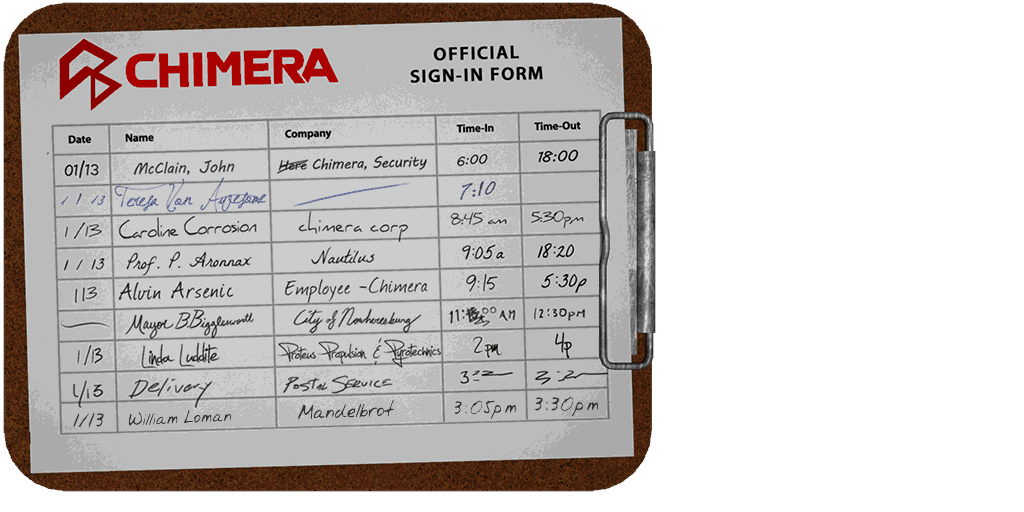 CHIMERA
OFFICIAL
SIGN-IN FORM
Date Name Company Time-In Time-Out
01/13 McClain, John Here Chimera, Security 6:00 18:00
1 1 13 Teresa Van Awesome 7:10
1/13 Caroline Corrosion chimera corp 8:45 am 5:30pm
1 / 13 Prof. P. Aronnax Nautilus 9:05a 18:20
113 Alvin Arsenic Employee - Chimera 9:15 5:30p
Mayor B. Bigglesworth City of Nowheresburg AM 12:30PM
1/13 Linda Luddite Proteus Propulsion & Pyrotechnics 2pm 4p
1/13 Delivery Postal Service
1/13 William Loman Mandelbrot 3:05pm 3:30pm